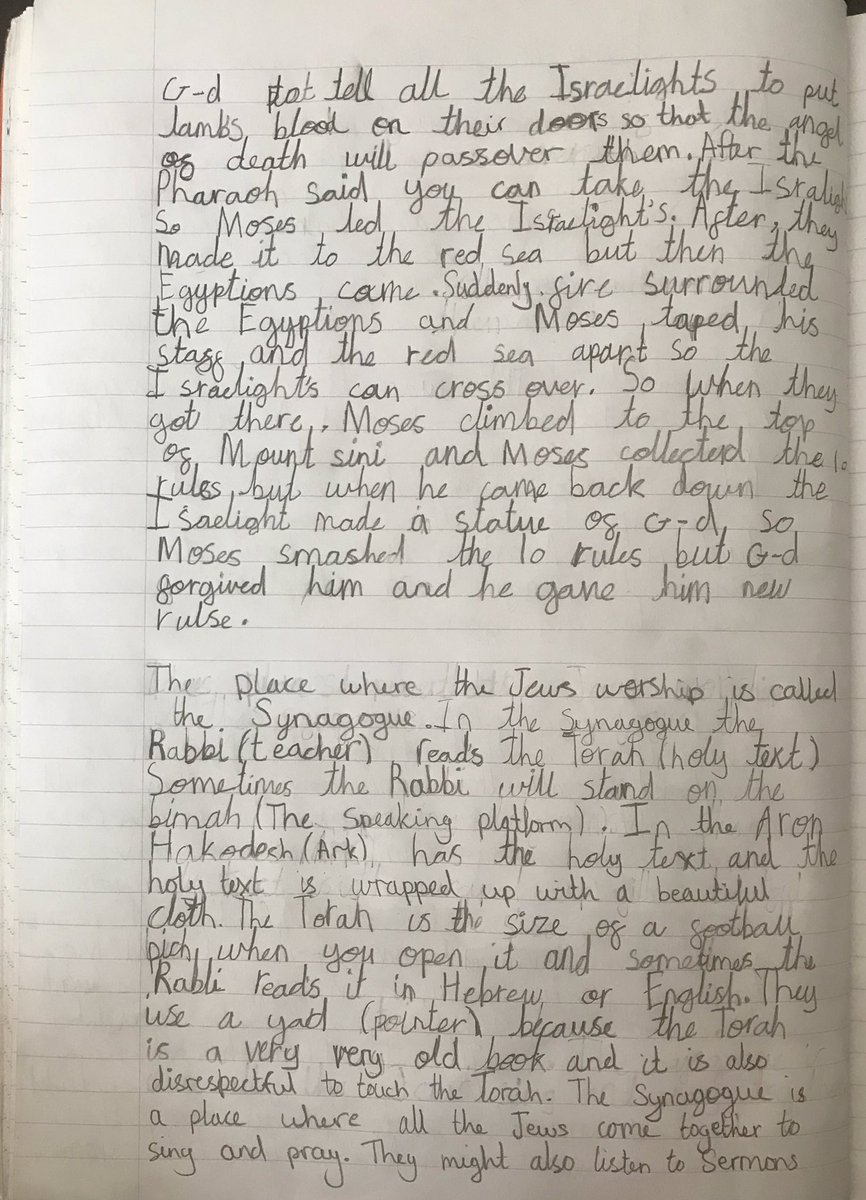 G-d tell all the Israelights to put
lambs blood on their doors so that the angel
of death will passover them. After the
Pharaoh said you can take the Isralight
So Moses led the Israelight's. After, they
made it to the red sea but then the
Egyptions came. Suddenly fire surrounded
the Egyptions and Moses taped his
staff and the red sea apart so the
Israelight's can cross over. So when they
got there, Moses climbed to the top
of Mount sini and Moses collected the 10
rules but when he came back down the
Isaelight made a statue of G-d, so
Moses smashed the 10 rules but G-d
forgived him and he gave him new
rulse.
The place where the Jews worship is called
the Synagogue. In the Synagogue the
Rabbi (teacher) reads the Torah (holy text)
Sometimes the Rabbi will stand on the
bimah (The speaking platform). In the Aron
Hakodesh (Ark) has the holy text and the
holy text is wrapped up with a beautiful
cloth. The Torah is the size of a football
pich when you open it and sometimes the
Rabbi reads it in Hebrew or English. They
use a yad (pointer) because the Torah
is a very very old book and it is also
disrespectful to touch the Torah. The Synagogue is
a place where all the Jews come together to
sing and pray. They might also listen to Sermons